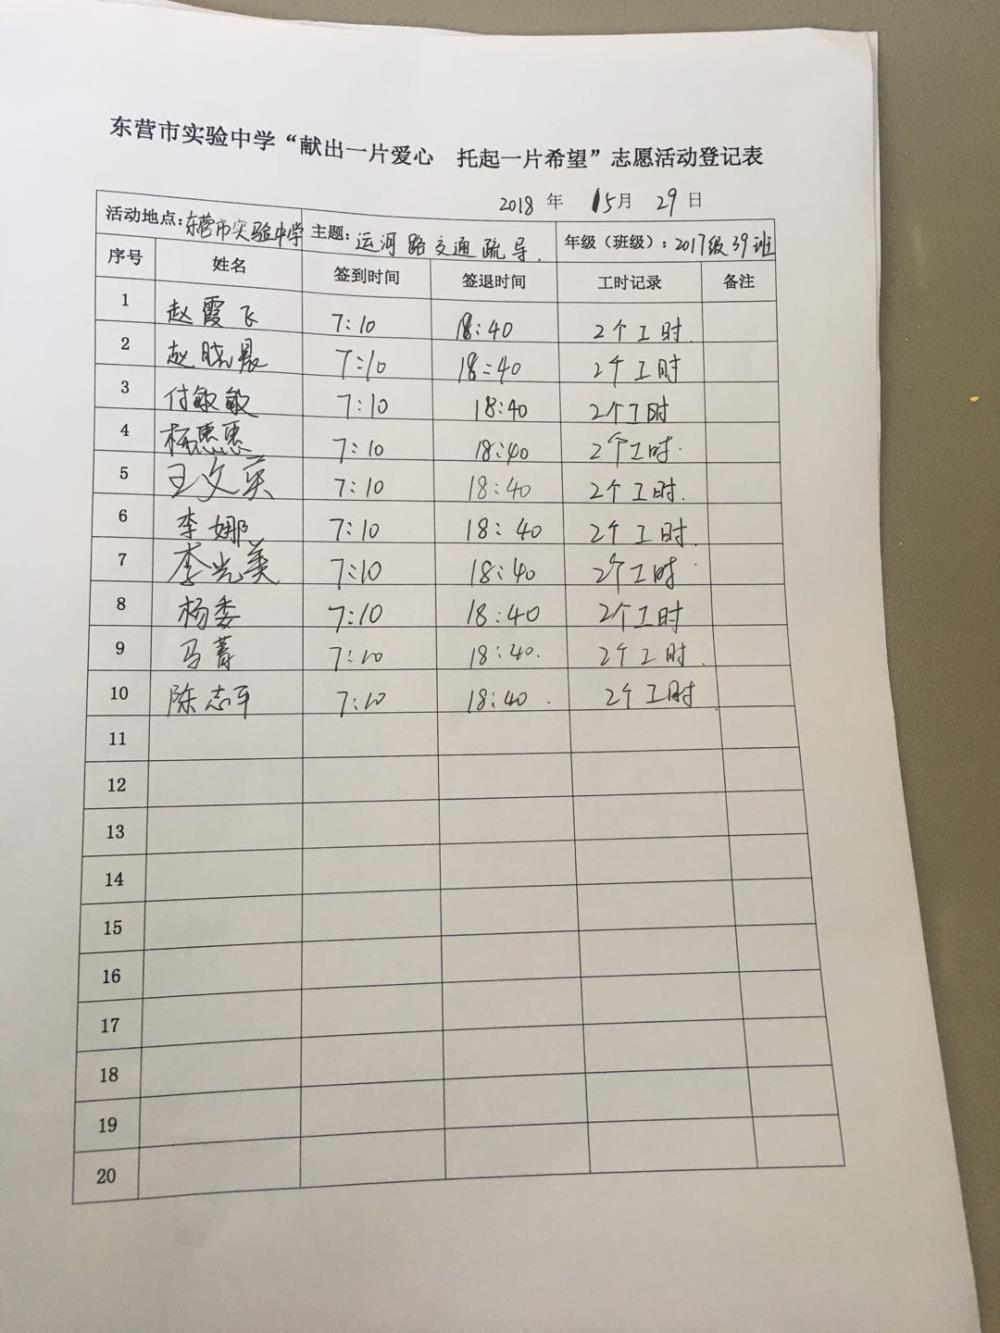 东营市实验中学“献出一片爱心 托起一片希望”志愿活动登记表
2018 年 15月 29 日
活动地点:东营市实验中学 主题:运河路交通疏导. 年级(班级):2017级39班
序号 姓名 签到时间 签退时间 工时记录 备注
1 赵霞飞 7:10 18:40 2个工时.
2 赵晓晨 7:10 18:40 2个工时
3 付敏敏 7:10 18:40 2个工时
4 杨惠惠 7:10 18:40 2个工时.
5 王文英 7:10 18:40 2个工时.
6 李娜 7:10 18:40 2个工时.
7 李光美 7:10 18:40 2个工时.
8 杨委 7:10 18:40 2个工时
9 马菁 7:10 18:40. 2个工时.
10 陈志平 7:10 18:40. 2个工时
11
12
13
14
15
16
17
18
19
20